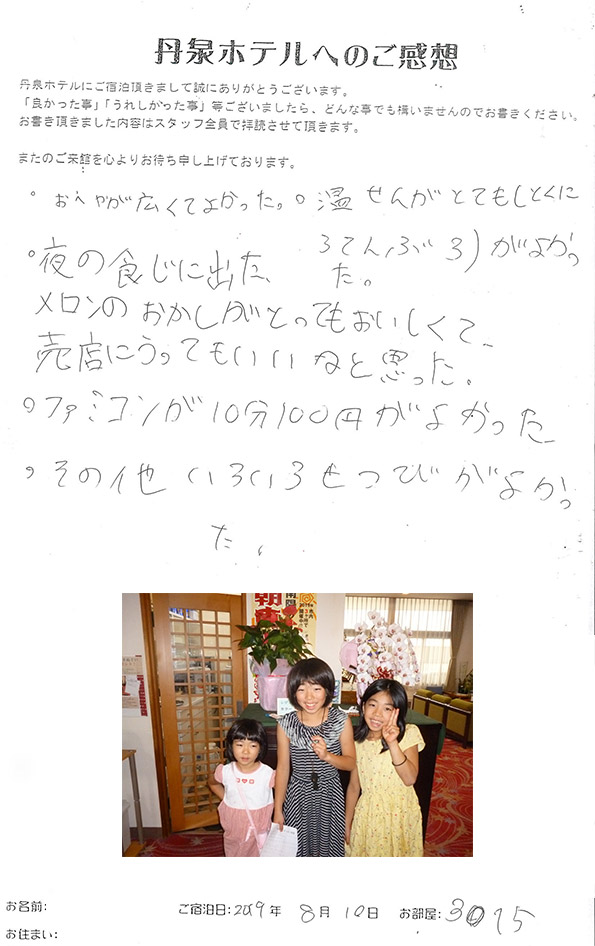 丹泉ホテルへのご感想
丹泉ホテルにご宿泊頂きまして誠にありがとうございます。
「良かった事」「うれしかった事」等ございましたら、どんな事でも構いませんのでお書きください。
お書き頂きました内容はスタッフ全員で拝読させて頂きます。
またのご来館を心よりお待ち申し上げております。
。おへやが広くてよかった。
。温せんがとてもしとくに
ろてんぶろ)がよかっ
た。
。夜の食じに出た、
メロンのおかしがとってもおいしくて、
売店にうってもいいねと思った。
。ファミコンが10分100円がよかった
。その他いろいろせつびがよかっ
た。
朝
お名前:
ご宿泊日:2019年 8月10日 お部屋:3015
お住まい: